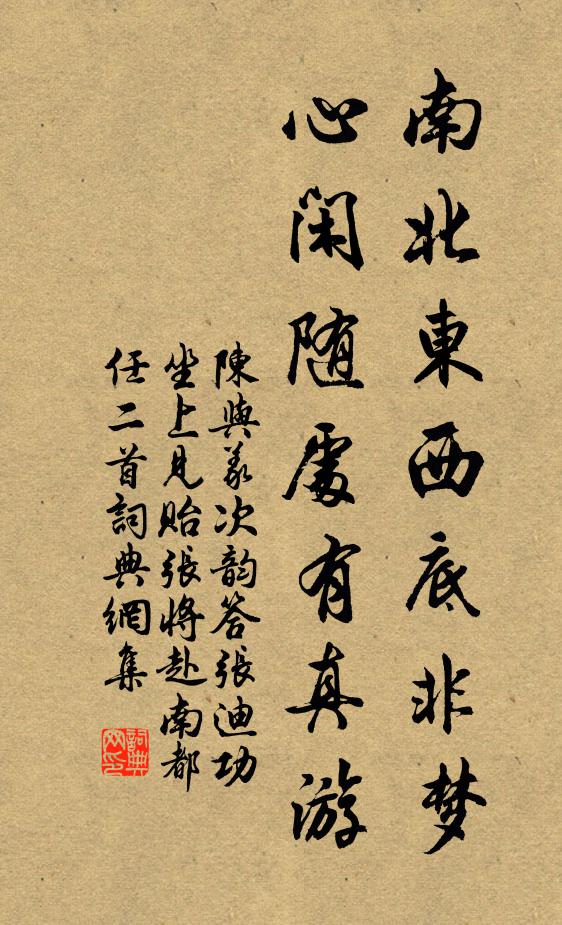 南北東西底非梦
心闲随處有真游
陳與義次韵答張迪功
坐上見貽張將赴南都
任二首詞典網集
詞典
网印